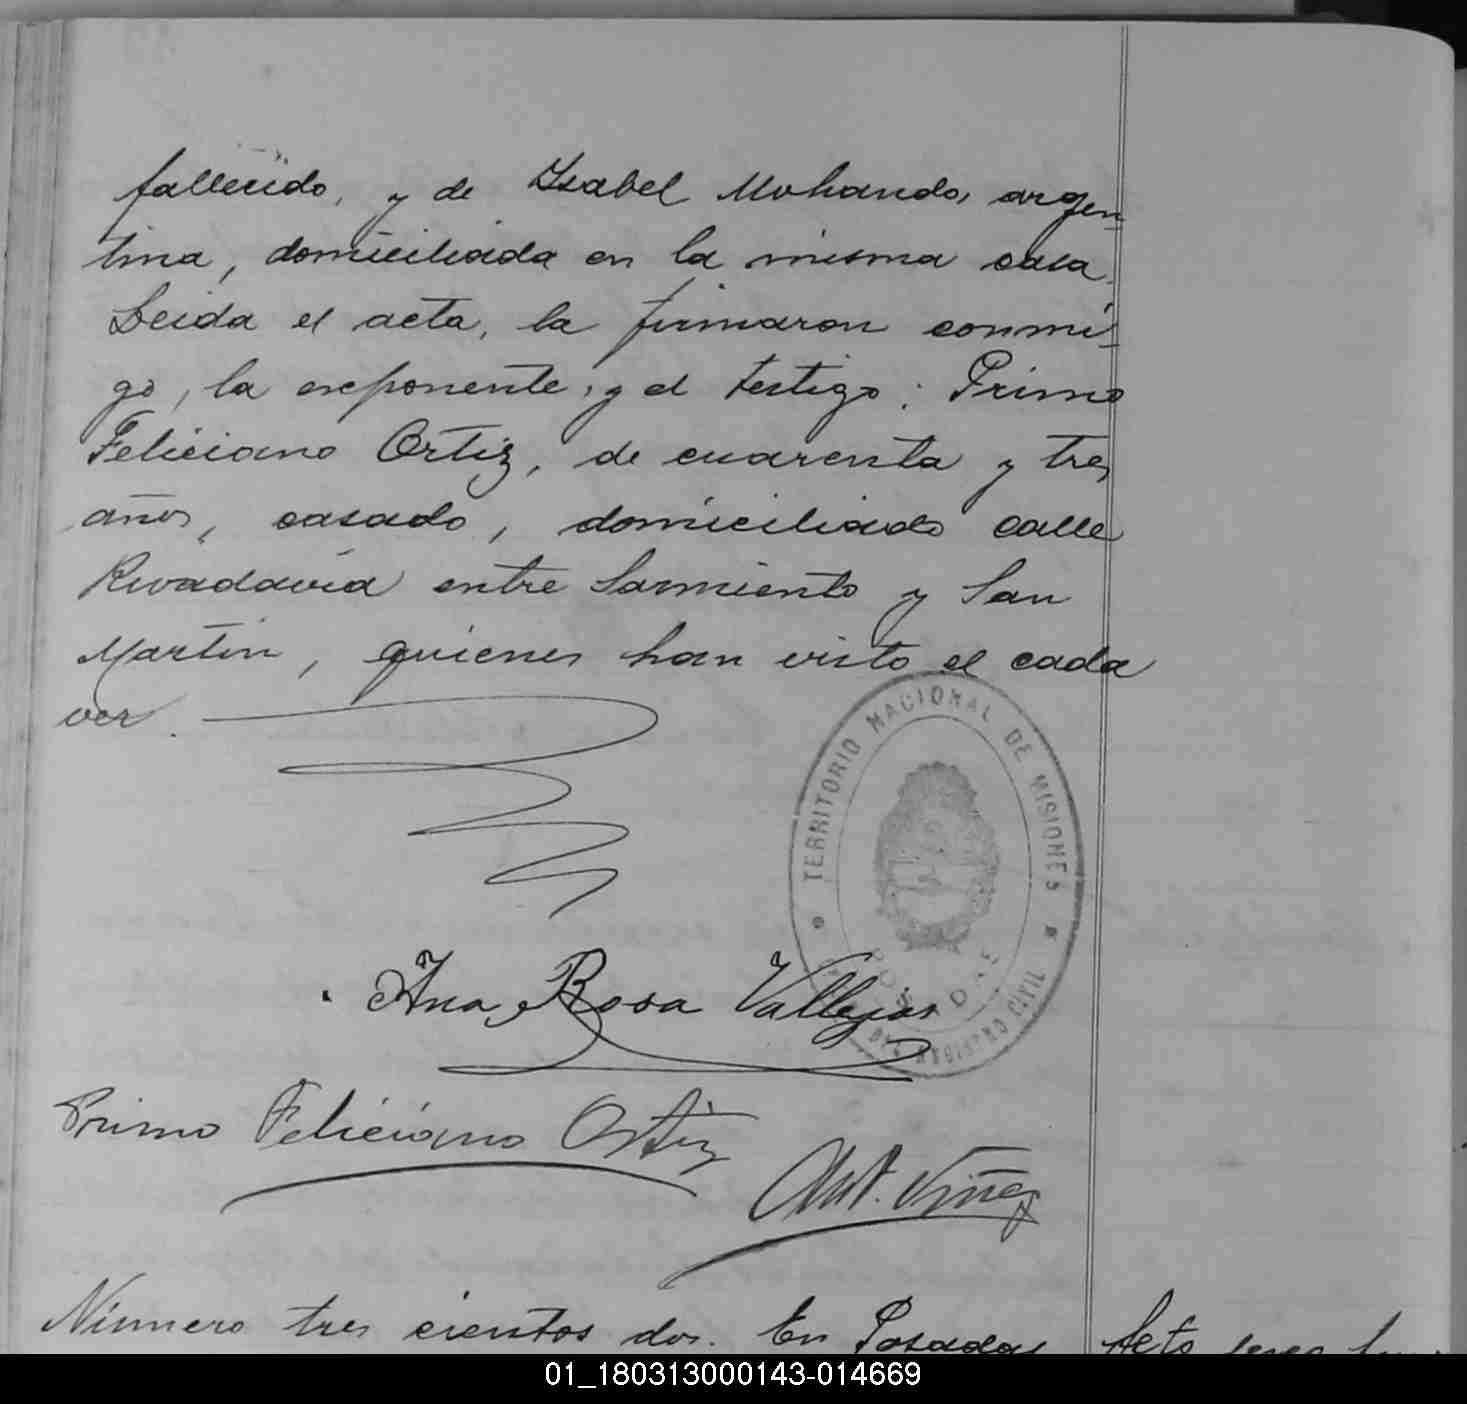 fallecido, y de Isabel Mohando, argen-
tina, domiciliada en la misma casa.
Leida el acta, la firmaron conmi-
go, la exponente, y el testigo: Primo
Feliciano Ortiz, de cuarenta y tres
años, casado, domiciliado calle
Rivadavia entre Sarmiento y San
Martin, quienes han visto el cada
ver.
TERRITORIO NACIONAL DE MISIONES
POSADAS
REGISTRO CIVIL
Ana Rosa Vallejos
Primo Feliciano Ortiz
Ant. Núñez
Número tres cientos dos. En Posadas
01_180313000143-014669